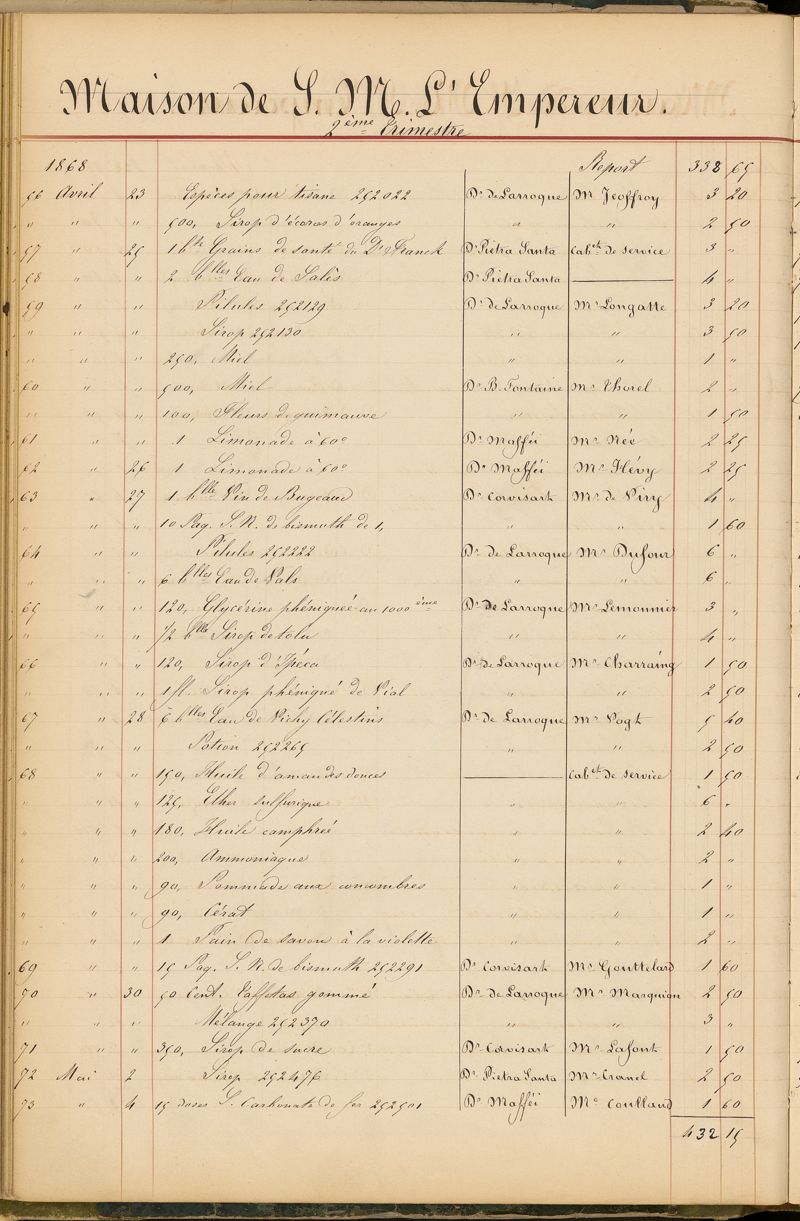 Maison de S. M. L'Empereur.
2ème Trimestre
1868 Report 338 65
56 Avril 23 Espèces pour tisane 252022 Dr de Larroque Mr Jeoffroy 3 20
" " " 500, Sirop d'écorces d'oranges " " 2 50
57 " 25 1 bte Grains de santé du Dr Franck Dr Pietra Santa Cabet de service 3 "
58 " " 2 blles Eau de Salès Dr Pietra Santa 4 "
59 " " Pilules 252129 Dr de Larroque Mr Longatte 3 20
" " " Sirop 252130 " " 3 50
" " " 250, Miel " " 1 "
60 " " 500, Miel Dr B. Fontaine Mr Thorel 2 "
" " " 100, Fleurs de guimauve " " 1 50
61 " " 1 Limonade à 60° Dr Mafféi Mr Née 2 25
62 " 26 1 Limonade à 60° Dr Mafféi Mr Hévy 2 25
63 " 27 1 blle Vin de Bugeaud Dr Corvisart Mr de Viry 4 "
" " " 10 Paq. S. N. de bismuth de 1, " " 1 60
64 " " Pilules 252222 Dr de Larroque Mr Dufour 6 "
" " " 6 blles Eau de Vals " " 6 "
65 " " 120, Glycérine phéniquée au 1000ème Dr de Larroque Mr Lemonnier 3 "
" " " 1/2 blle Sirop de tolu " " 4 "
66 " " 120, Sirop d'Ipéca Dr de Larroque Mr Charraing 1 50
" " " 1 fl. Sirop phéniqué de Vial " " 2 50
67 " 28 6 blles Eau de Vichy Célestins Dr de Larroque Mr Vogt 5 40
" " " Potion 252265 " " 2 50
68 " " 150, Huile d'amandes douces Cabet de service 1 50
" " " 125, Ether sulfurique " " 6 "
" " " 180, Huile camphrée " " 2 40
" " " 200, Ammoniaque " " 2 "
" " " 90, Pommade aux concombres " " 1 "
" " " 90, Cérat " " 1 "
" " " 1 Pain de savon à la violette " " 2 "
69 " " 15 Paq. S. N. de bismuth 252291 Dr Corvisart Mr Gouttelard 1 60
70 " 30 50 Cent. Taffetas gommé Dr de Larroque Mr Marquion 2 50
" " " Mélange 252370 " " 3 "
71 " " 350, Sirop de sucre Dr Corvisart Mr Lafont 1 50
72 Mai 2 Sirop 252476 Dr Pietra Santa Mr Cranel 2 50
73 " 4 15 doses S. Carbonate de fer 252501 Dr Mafféi Mr Coulland 1 60
432 15